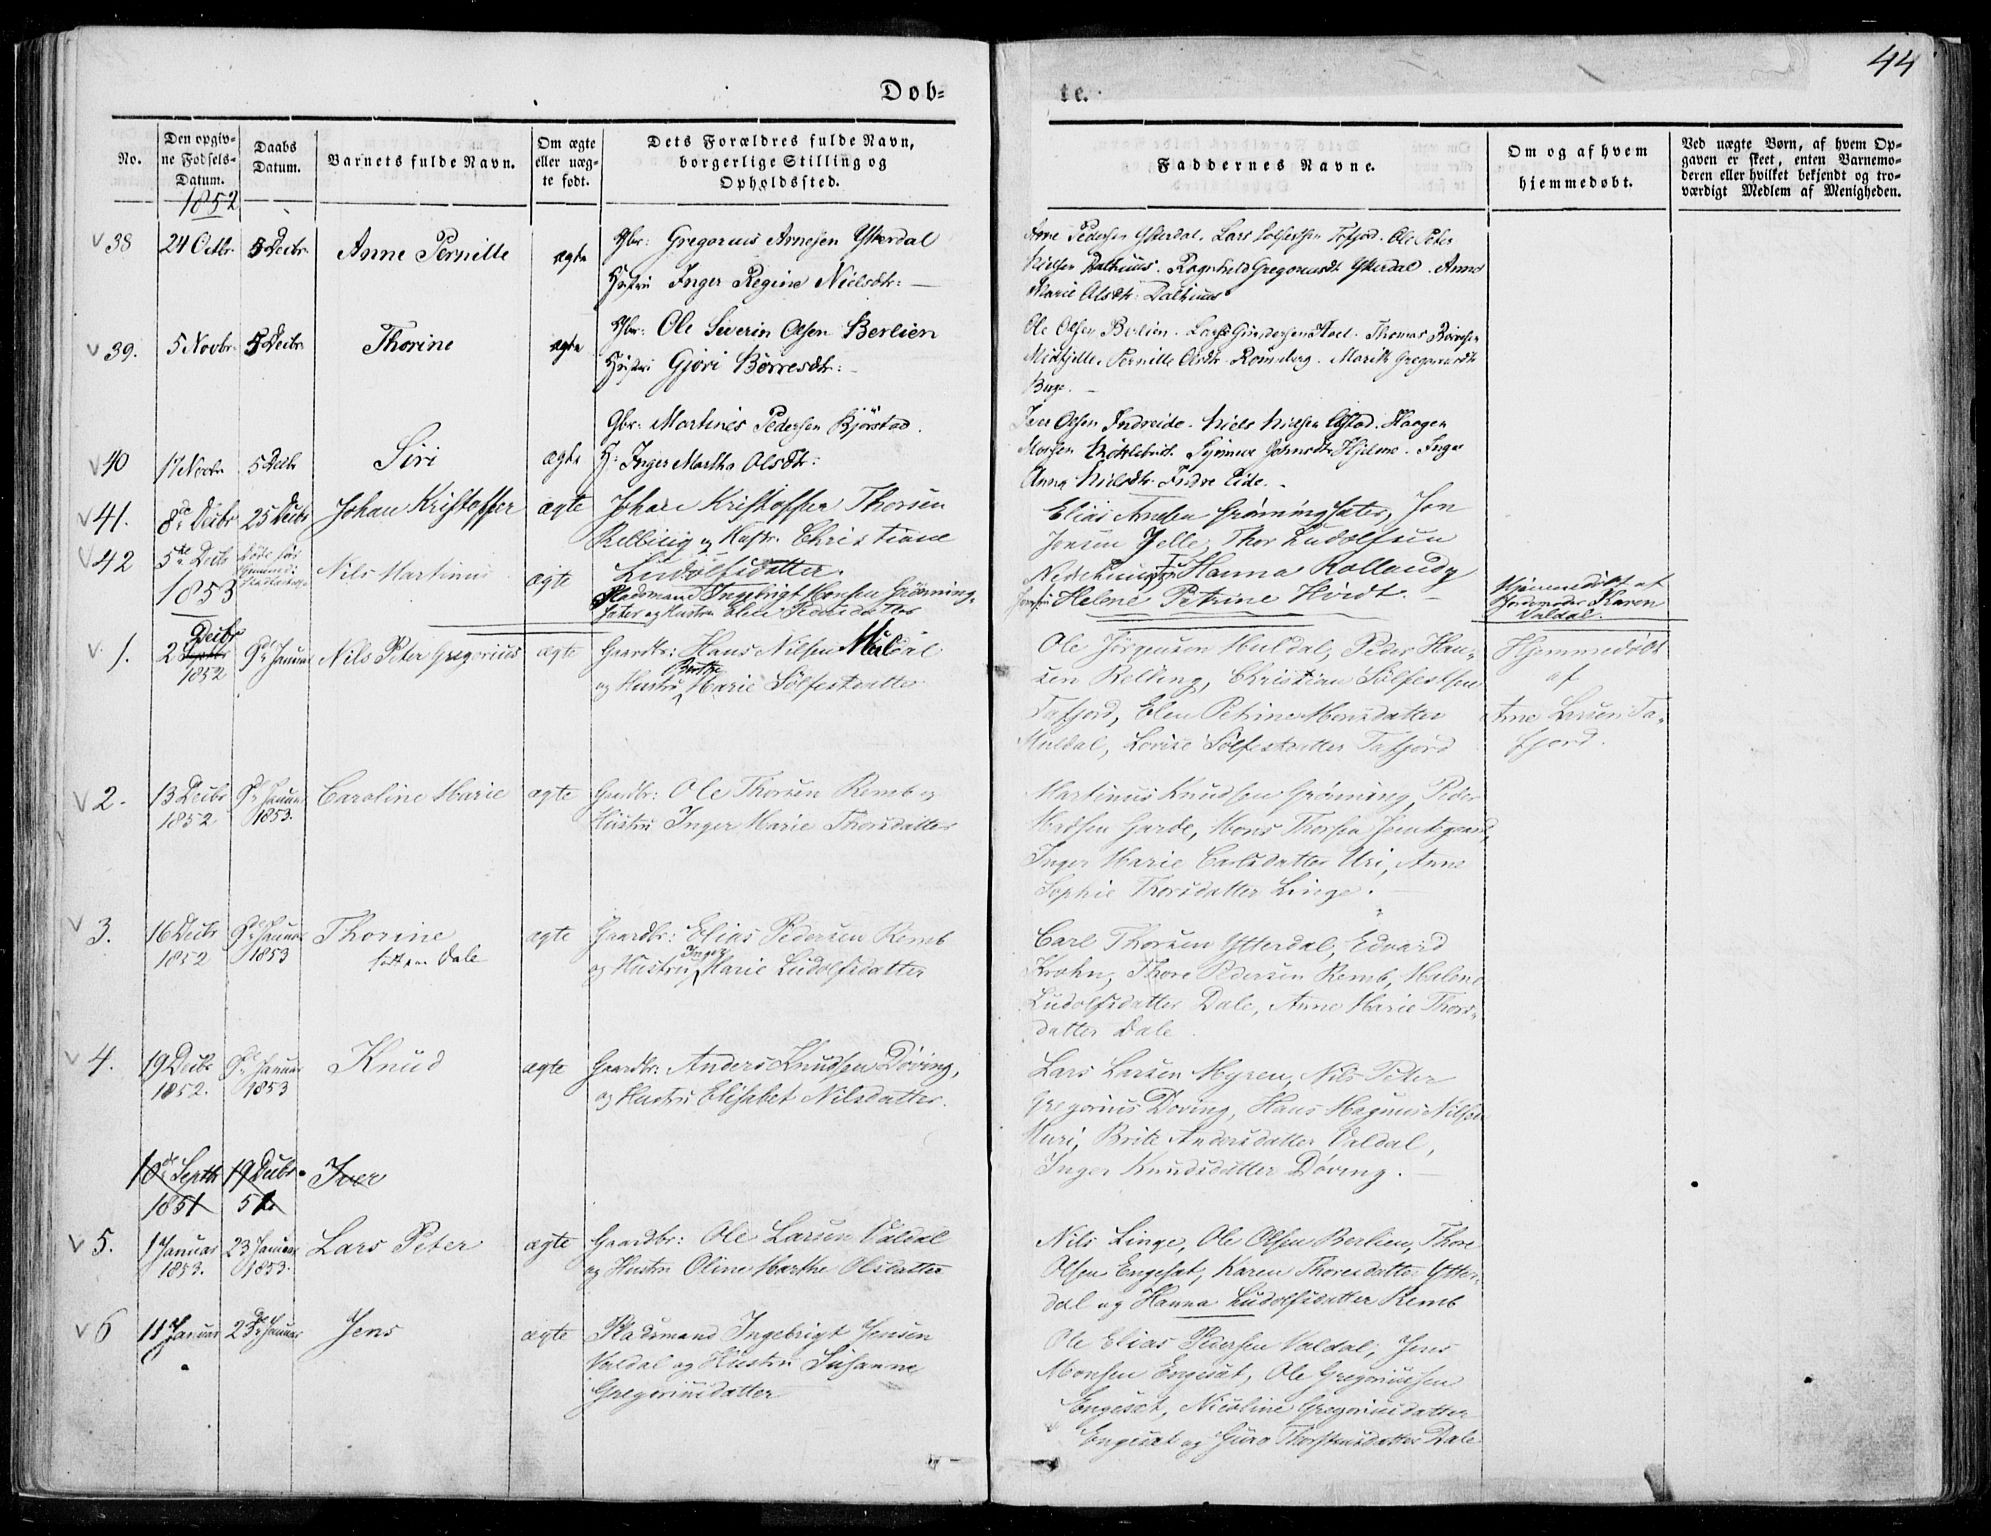 44
Døb=
te.
No.
Den opgiv-
ne Fødsels-
Datum.
Daabs
Datum.
Barnets fulde Navn.
Om ægte
eller uæg-
te født.
Dets Forældres fulde Navn,
borgerlige Stilling og
Opholdssted.
Faddernes Navne.
Om og af hvem
hjemmedøbt.
Ved uægte Børn, af hvem Op-
gaven er skeet, enten Barnemo-
deren eller hvilket bekjendt og tro-
værdigt Medlem af Menigheden.
1852
38 24 Octbr. 5 Decbr. Anne Pernille ægte Gbr: Gregorius Arnesen Ytterdal
Hustru Inger Regine Nielsdtr:
Arne Pedersen Ytterdal. Lars Tafjord. Ole Peter
Nielsen Dalhuus. Ragnhild Gregoriusdt Ytterdal. Anne
Marie Olsdtr. Dalhuus
39. 5 Novbr. 5 Decbr Thorine ægte Gbr: Ole Siverin Olsen Berlien
Hustru Gjøri Børresdtr:
Ole Olsen Berlien. Thomas
Pernille Olsdtr. Marith
Berge.
40 17 Novbr 5 Decbr Siri ægte Gbr: Martinus Pedersen Bjørstad.
H: Inger Martha Olsdtr:
Iver Olsen Indreide. Niels Nielsen Haagen
Hjelme. Inger
Anna Nielsdtr. Indre Eide.
41. 8de Decbr 25 Decbr Johan Kristoffer ægte Johan Kristoffer Thorsen
Relling og Hustr. Christiane
Ludolfsdatter.
Elias Grønningsæter, Jon
Jonsen Jelle, Thor Ludolfsen
Hanna Rolland,
Helene Petrine Hoidt.
42 5te Decbr Nils Martinus ægte
Pladsmand Ingebrigt Monsen Grønning-
sæter og Hustru Elen Pedersdatter
Hjemmedøbt af
Jordemoder Karen
Valdal.
1853
1. 2 Decbr
1852 9de Januar Nils Peter Gregorius ægte Gaardbr: Hans Nilsen Muldal
og Hustru Berthe Marie Sølfestdatter
Ole Jørgensen Muldal, Peder Han-
sen Relling, Christian Sølfestsen
Tafjord, Elen Petrine Monsdatter
Muldal, Lovise Sølfestdatter Tafjord
Hjemmedøbt
af
Arne Larsen Ta-
fjord.
2. 13 Decbr
1852 9de Januar
1853. Caroline Marie ægte Gaardbr: Ole Thorsen Remb og
Hustru Inger Marie Thorsdatter
Martinus Knudsen Grønning, Peder
Madsen Garde, Mons Thorsen
Inger Marie Carlsdatter Uri, Anne
Sophie Thorsdatter Linge.
3. 16 Decbr
1852 9de Januar
1853 Thorine
født paa Dale ægte Gaardbr: Elias Pedersen Remb
og Hustru Inger Marie Ludolfsdatter
Carl Thorsen Ytterdal, Edvard
Krohn, Thore Pedersen Remb, Malene
Ludolfsdatter Dale, Anne Marie Thors-
datter Dale.
4. 19 Decbr
1852. 9de Januar
1853 Knud ægte Gaardbr: Anders Knudsen Døving,
og Hustru Elisabet Nilsdatter.
Lars Larsen Myren, Nils Peter
Gregorius Døving, Hans Magnus Nilsen
Muri, Brite Andersdatter Valdal,
Inger Knudsdatter Døving.
10de Septbr
1851 19 Decbr.
51 Iver
5. 1 Januar
1853. 23 Januar
1853. Lars Peter ægte Gaardbr: Ole Larsen Valdal
og Hustru Oline Marthe Olsdatter
Nils Linge, Ole Olsen Berlien, Thore
Olsen Engeset, Karen Thoresdatter Ytter-
dal og Hanna Ludolfsdatter Remb
6 11 Januar 23de Januar Jens ægte Pladsmand Ingebrigt Jensen
Valdal og Hustru Susanne
Gregoriusdatter
Ole Elias Pedersen Valdal, Jens
Monsen Engeset, Ole Gregoriussen
Engeset, Nicoline Gregoriusdatter
Engeset og Guro Thorstensdatter Dale